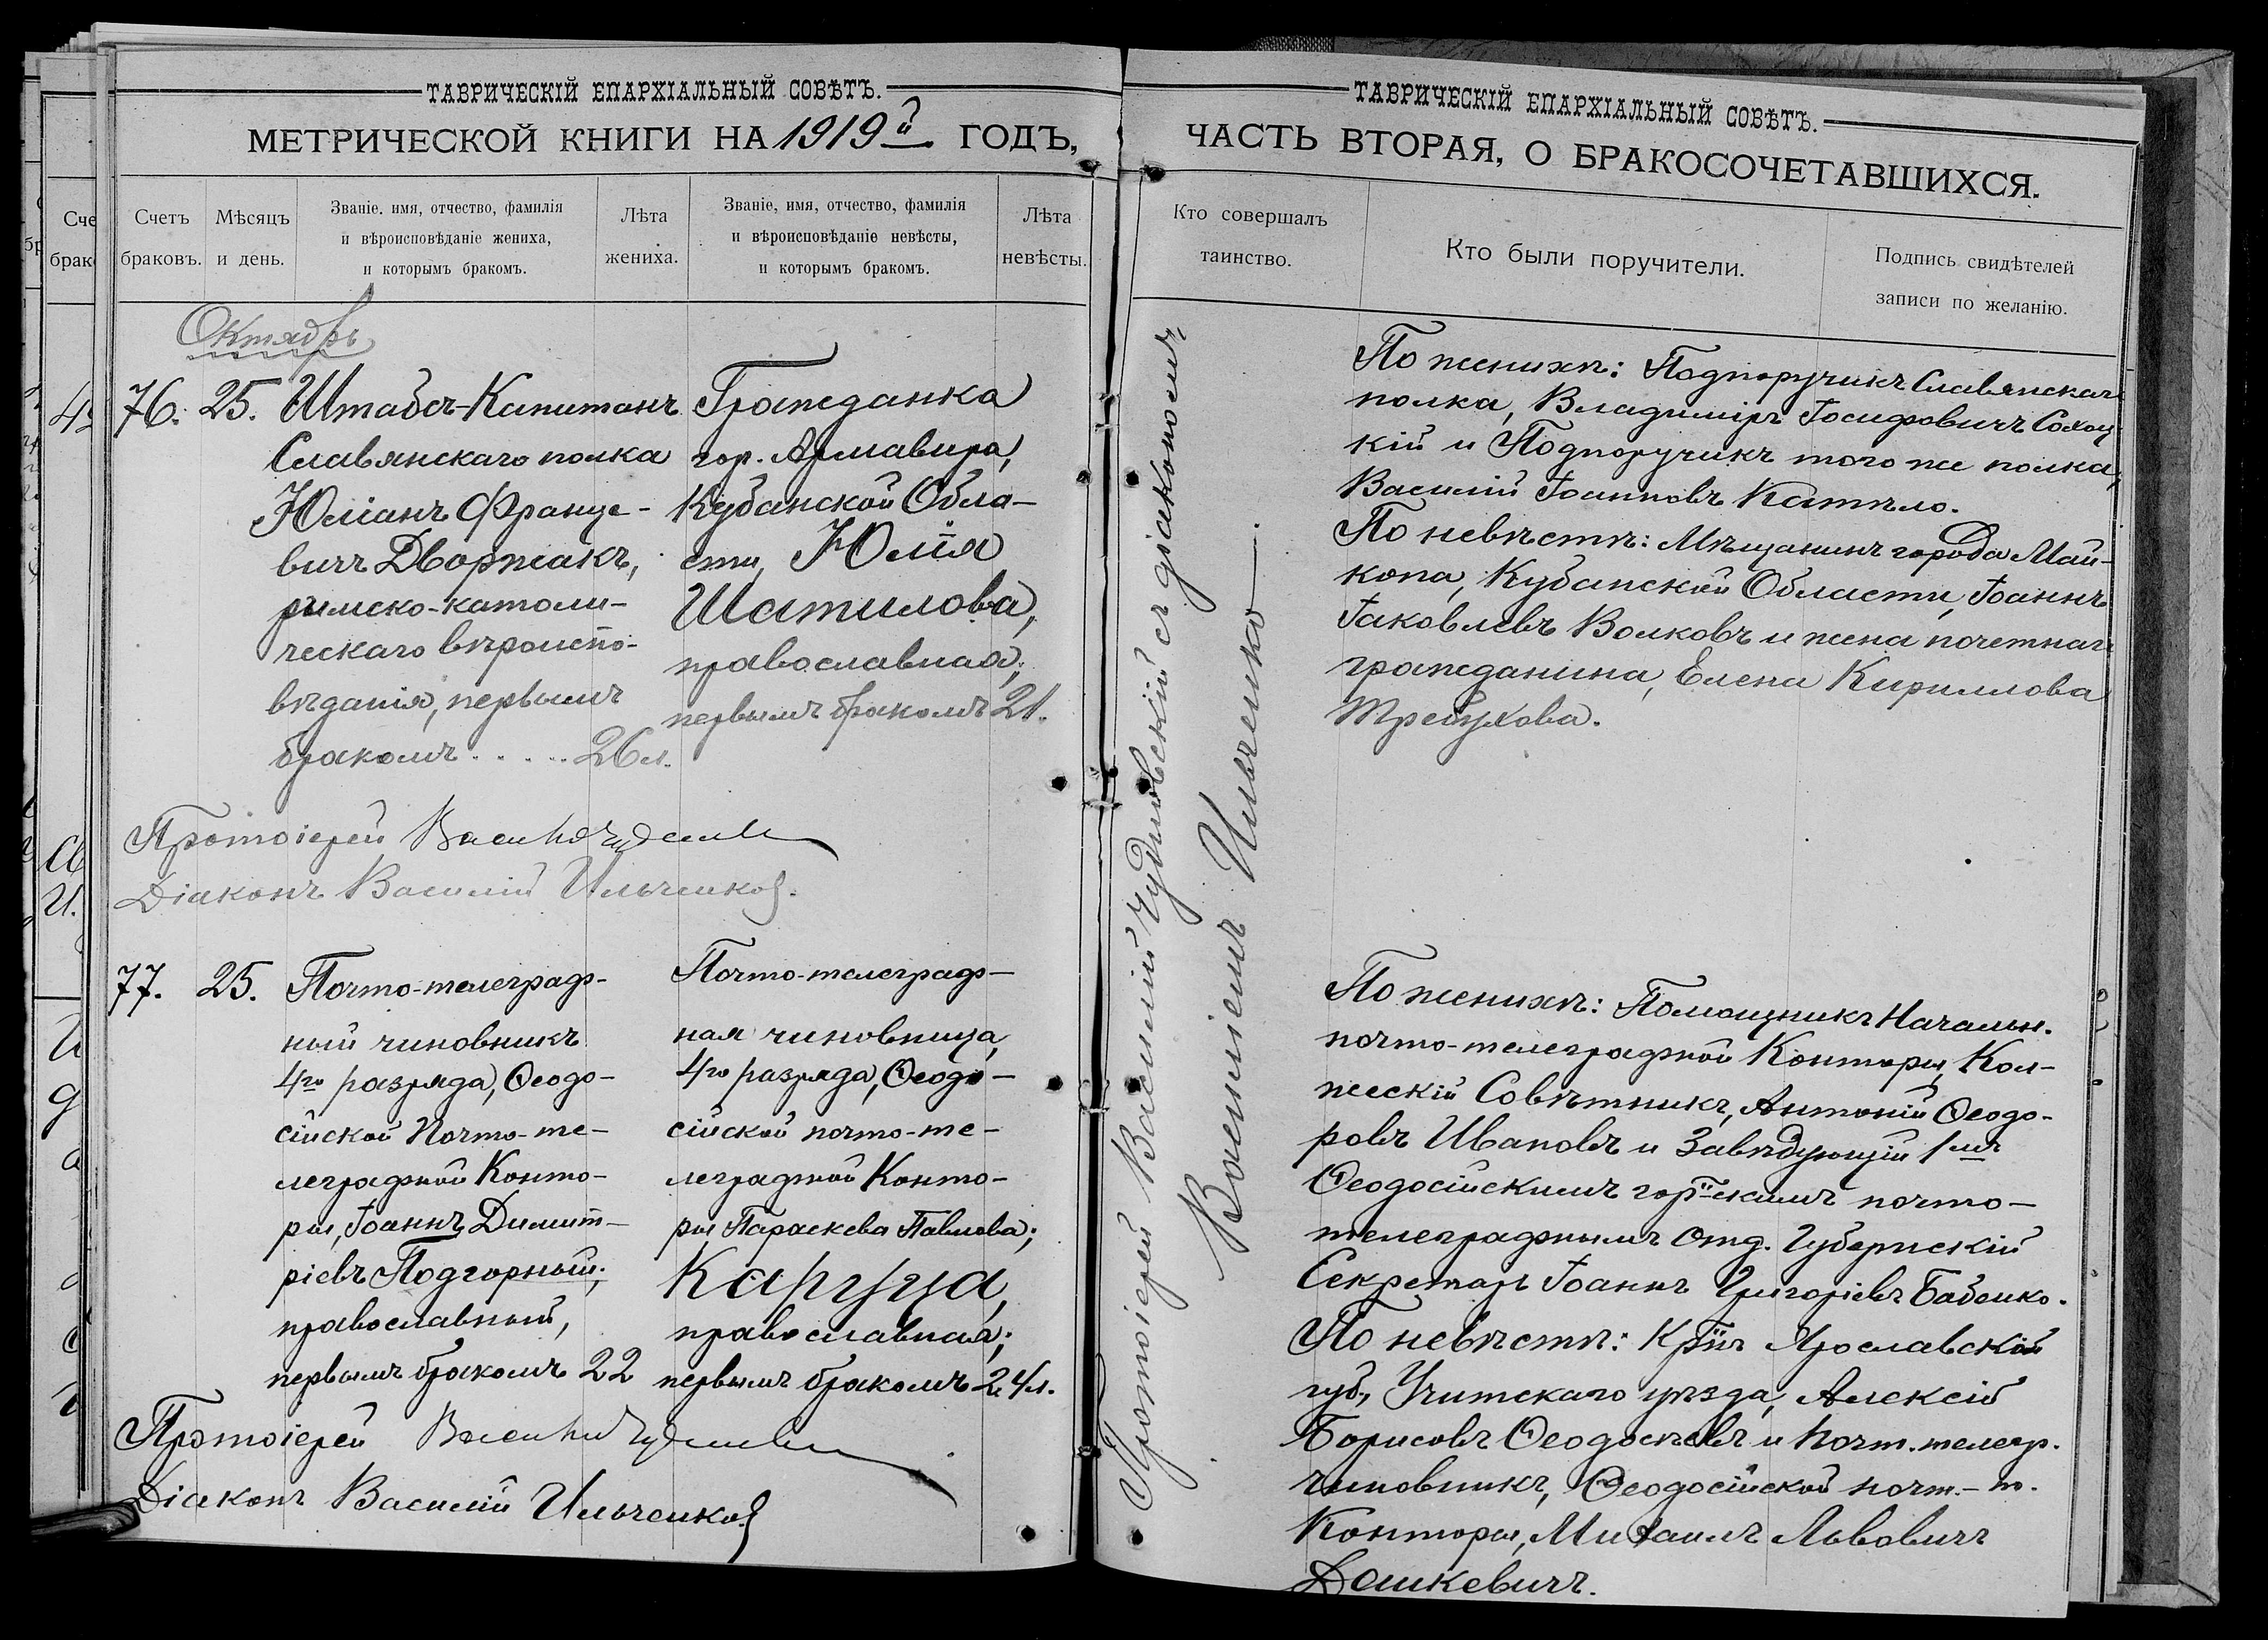 ТАВРИЧЕСКІЙ ЕПАРХІАЛЬНЫЙ СОВѢТЪ.
МЕТРИЧЕСКОЙ КНИГИ НА 1919й ГОДЪ,
Счетъ браковъ.
Мѣсяцъ и день.
Званіе. имя, отчество, фамилія
и вѣроисповѣданіе жениха,
и которымъ бракомъ.
Лѣта жениха.
Званіе, имя, отчество, фамилія
и вѣроисповѣданіе невѣсты,
и которымъ бракомъ.
Лѣта невѣсты.
Октябрь
76. 25. Штабсъ-Капитанъ
Славянскаго полка
Юліанъ Францe-
вичъ Дворжакъ,
римско-католи-
ческаго вѣроиспо-
вѣданія, первымъ
бракомъ . . . . . 26 л.
Гражданка
гор. Армавира,
Кубанской Обла-
сти, Юлія
Шатилова,
православная,
первымъ бракомъ 21.
Протоіерей Василій
Діаконъ Василій Ильченко.
77. 25. Почто-телеграф-
ный чиновникъ
4го разряда, Ѳеодо-
сійской Почто-те-
леграфной Конто-
ры, Іоаннъ Димит-
ріевъ Подгорный;
православный,
первымъ бракомъ 22
Почто-телеграф-
ная чиновница,
4го разряда, Ѳеодо-
сійской почто-те-
леграфной Конто-
ры Параскева Павлова;
Каруца,
православная;
первымъ бракомъ 24 л.
Протоіерей Василій
Діаконъ Василій Ильченко
ТАВРИЧЕСКІЙ ЕПАРХІАЛЬНЫЙ СОВѢТЪ.
ЧАСТЬ ВТОРАЯ, О БРАКОСОЧЕТАВШИХСЯ.
Кто совершалъ таинство.
Кто были поручители.
Подпись свидѣтелей
записи по желанію.
Протоіерей Василій Чудновскій съ діакономъ
Василіемъ Ильченко
По женихѣ: Подпоручикъ Славянскаго
полка, Владиміръ Іосифовичъ
кій и Подпоручикъ того же полка,
Василій Іоанновъ Катѣло.
По невѣстѣ: Мѣщанинъ города Май-
копа, Кубанской Области, Іоаннъ
Іаковлевъ Волковъ и жена почетнаго
гражданина, Елена Кириллова
Требухова.
По женихѣ: Помощникъ Начальн.
почто-телеграфной Конторы, Кол-
лежскій Совѣтникъ, Антоній Ѳеодо-
ровъ Ивановъ и Завѣдующій 1мъ
Ѳеодосійскимъ горскимъ почто-
телеграфнымъ отд. Губернскій
Секретарь Іоаннъ Григоріевъ Бабенко.
По невѣстѣ: Крнъ Ярославской
губ, Учитскаго уѣзда, Алексій
Борисовъ Ѳеодосѣевъ и почт. телегр.
чиновникъ, Ѳеодосійской почт.-т.
Конторы, Михаилъ Львовичъ
Дашкевичъ.